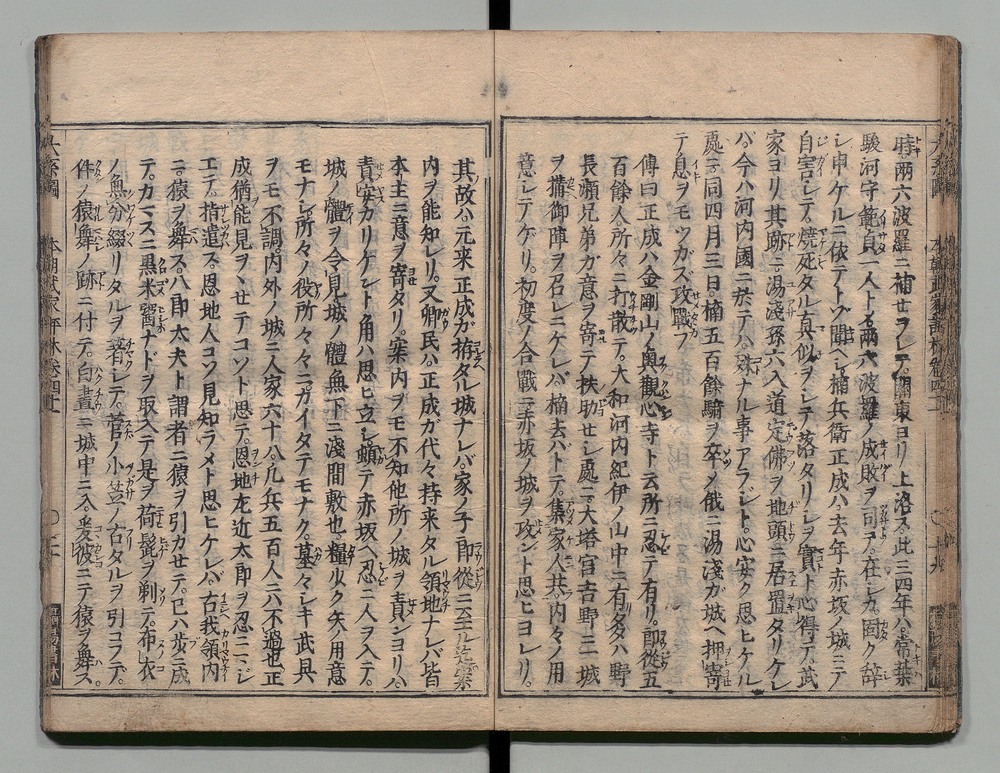 時両六波羅ニ補せラレテ。關東ヨリ上洛ス此三四年ハ常葉
駿河守範貞一人トノ兩六波羅ノ成敗ヲ司テ。在シカ。固ク辞
シ申ケルニ依テトゾ聞ヘシ楠兵衛正成ハ去年赤坂ノ城ニテ
自害シテ。焼死タル真似ヲシテ落タリシヲ實ト心得テ。武
家ヨリ其跡ニ湯淺孫六入道定佛ヲ地頭ニ居置タリケレ
バ今ハ河内國ニ於テハ殊ナル事アラジト。心安ク思ヒケル
處ニ。同四月三日。楠五百餘騎ヲ卒メ俄ニ湯淺ガ城ヘ押寄
テ息ヲモツガズ攻戰フ
傳曰正成ハ金剛山ノ奥觀心寺ト云所ニ忍テ有リ。郎從五
百餘人所々ニ打散テ。大和河内紀伊ノ山中ニ有多ハ野
長瀬兄弟ガ意ヲ寄テ扶助せシ處ニ。大塔宮吉野ニ城
ヲ搆御陣ヲ召レニケレバ。楠去バトテ。集家人共。内々ノ用
意シテケゲリ。初度ノ合戰ニ赤坂ノ城ヲ攻ント思ヒヨレリ。
其故ハ元来正成ガ拵タル城ナレバ家ノ子郎從ニ至ル迄案
内ヲ能知レリ。又郷民ハ正成ガ代々持来タル領地ナレバ皆
本主ニ意ヲ寄タリ。案内ヲモ不知他所ノ城ヲ責ンヨリハ
責安カリケント角ハ思ヒ立シ頓テ赤坂ヘ忍ニ人ヲ入テ。
城ノ體ヲ今見城ノ體無下ニ淺間敷也。糧少ク矢ノ用意
モナシ所々ノ役所々々ニガイタテモナク。墓々シキ武具
ヲモ不調内外ノ城ニ人家六十八凡兵五百人ニハ不過也正
成猶能見ヲヽせテコソト思テ。恩地左近太郎ヲ忍ニヽシ
エテ。指遣ス恩地人コソ見知ラメト思ヒケレバ古我領内
ニ猿ヲ舞ス。八郎太夫ト謂者ニ猿ヲ引カせテ。已ハ歩ニ成
テ。カマスニ黒米醤ナドヲ取入テ是ヲ荷髭ヲ剃テ。布衣
ノ無分綴リタルヲ著シテ菅ノ小笠ノ古タルヲ引コウテ。
件ノ猿舞ノ跡ニ付テ。白晝ニ城中ニ入。爰彼ニテ猿ヲ舞ス。